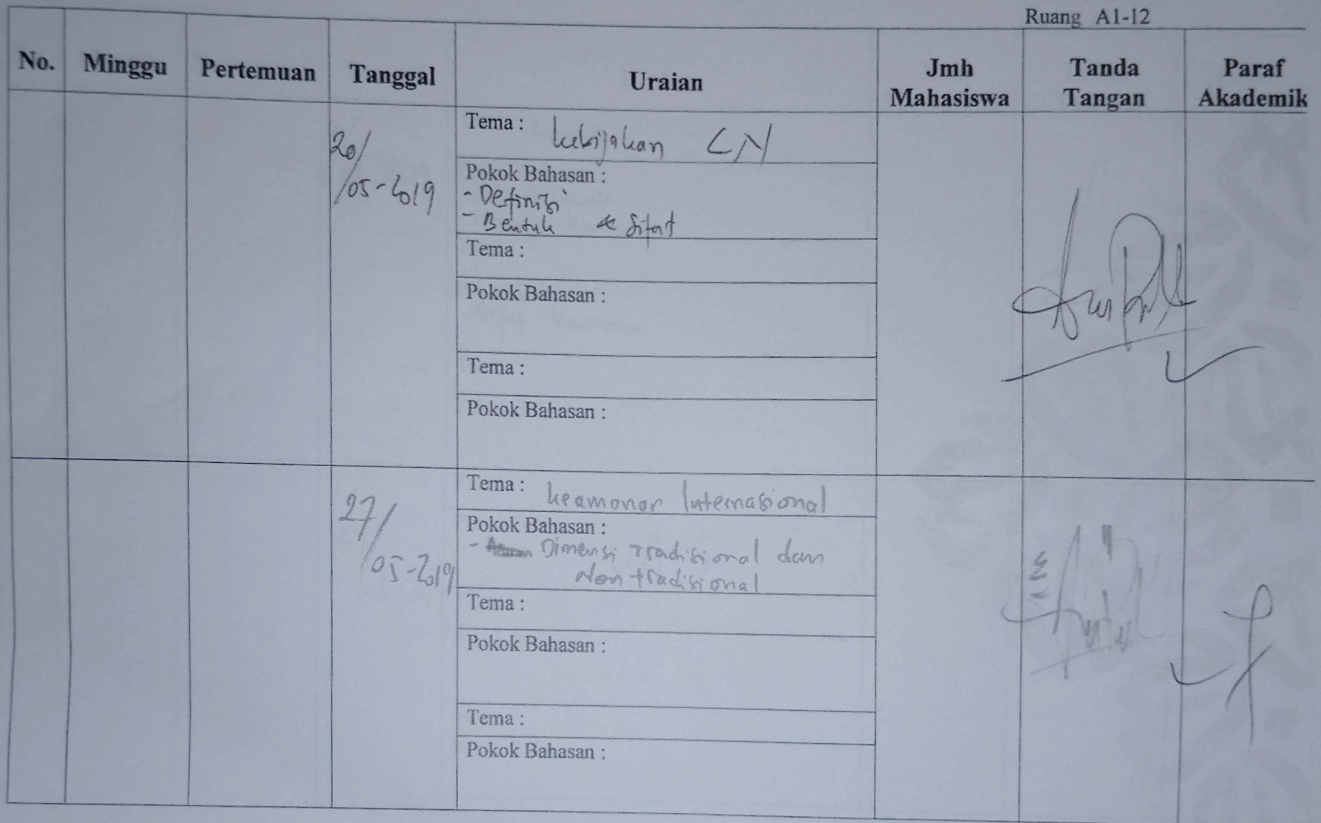 Ruang A1-12
No. Minggu Pertemuan Tanggal Uraian Jmh Mahasiswa Tanda Tangan Paraf Akademik
20/05-2019
Tema : kebijakan LN
Pokok Bahasan :
- Definisi
- Bentuk & Sifat
Tema :
Pokok Bahasan :
Tema :
Pokok Bahasan :
27/05-2019
Tema : keamanan Internasional
Pokok Bahasan :
- Dimensi Tradisional dan
Non tradisional
Tema :
Pokok Bahasan :
Tema :
Pokok Bahasan :